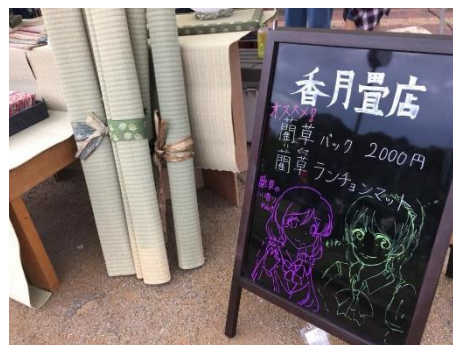 香月畳店
オススメ!
藺草バック 2000円
藺草ランチョンマット
藺草の